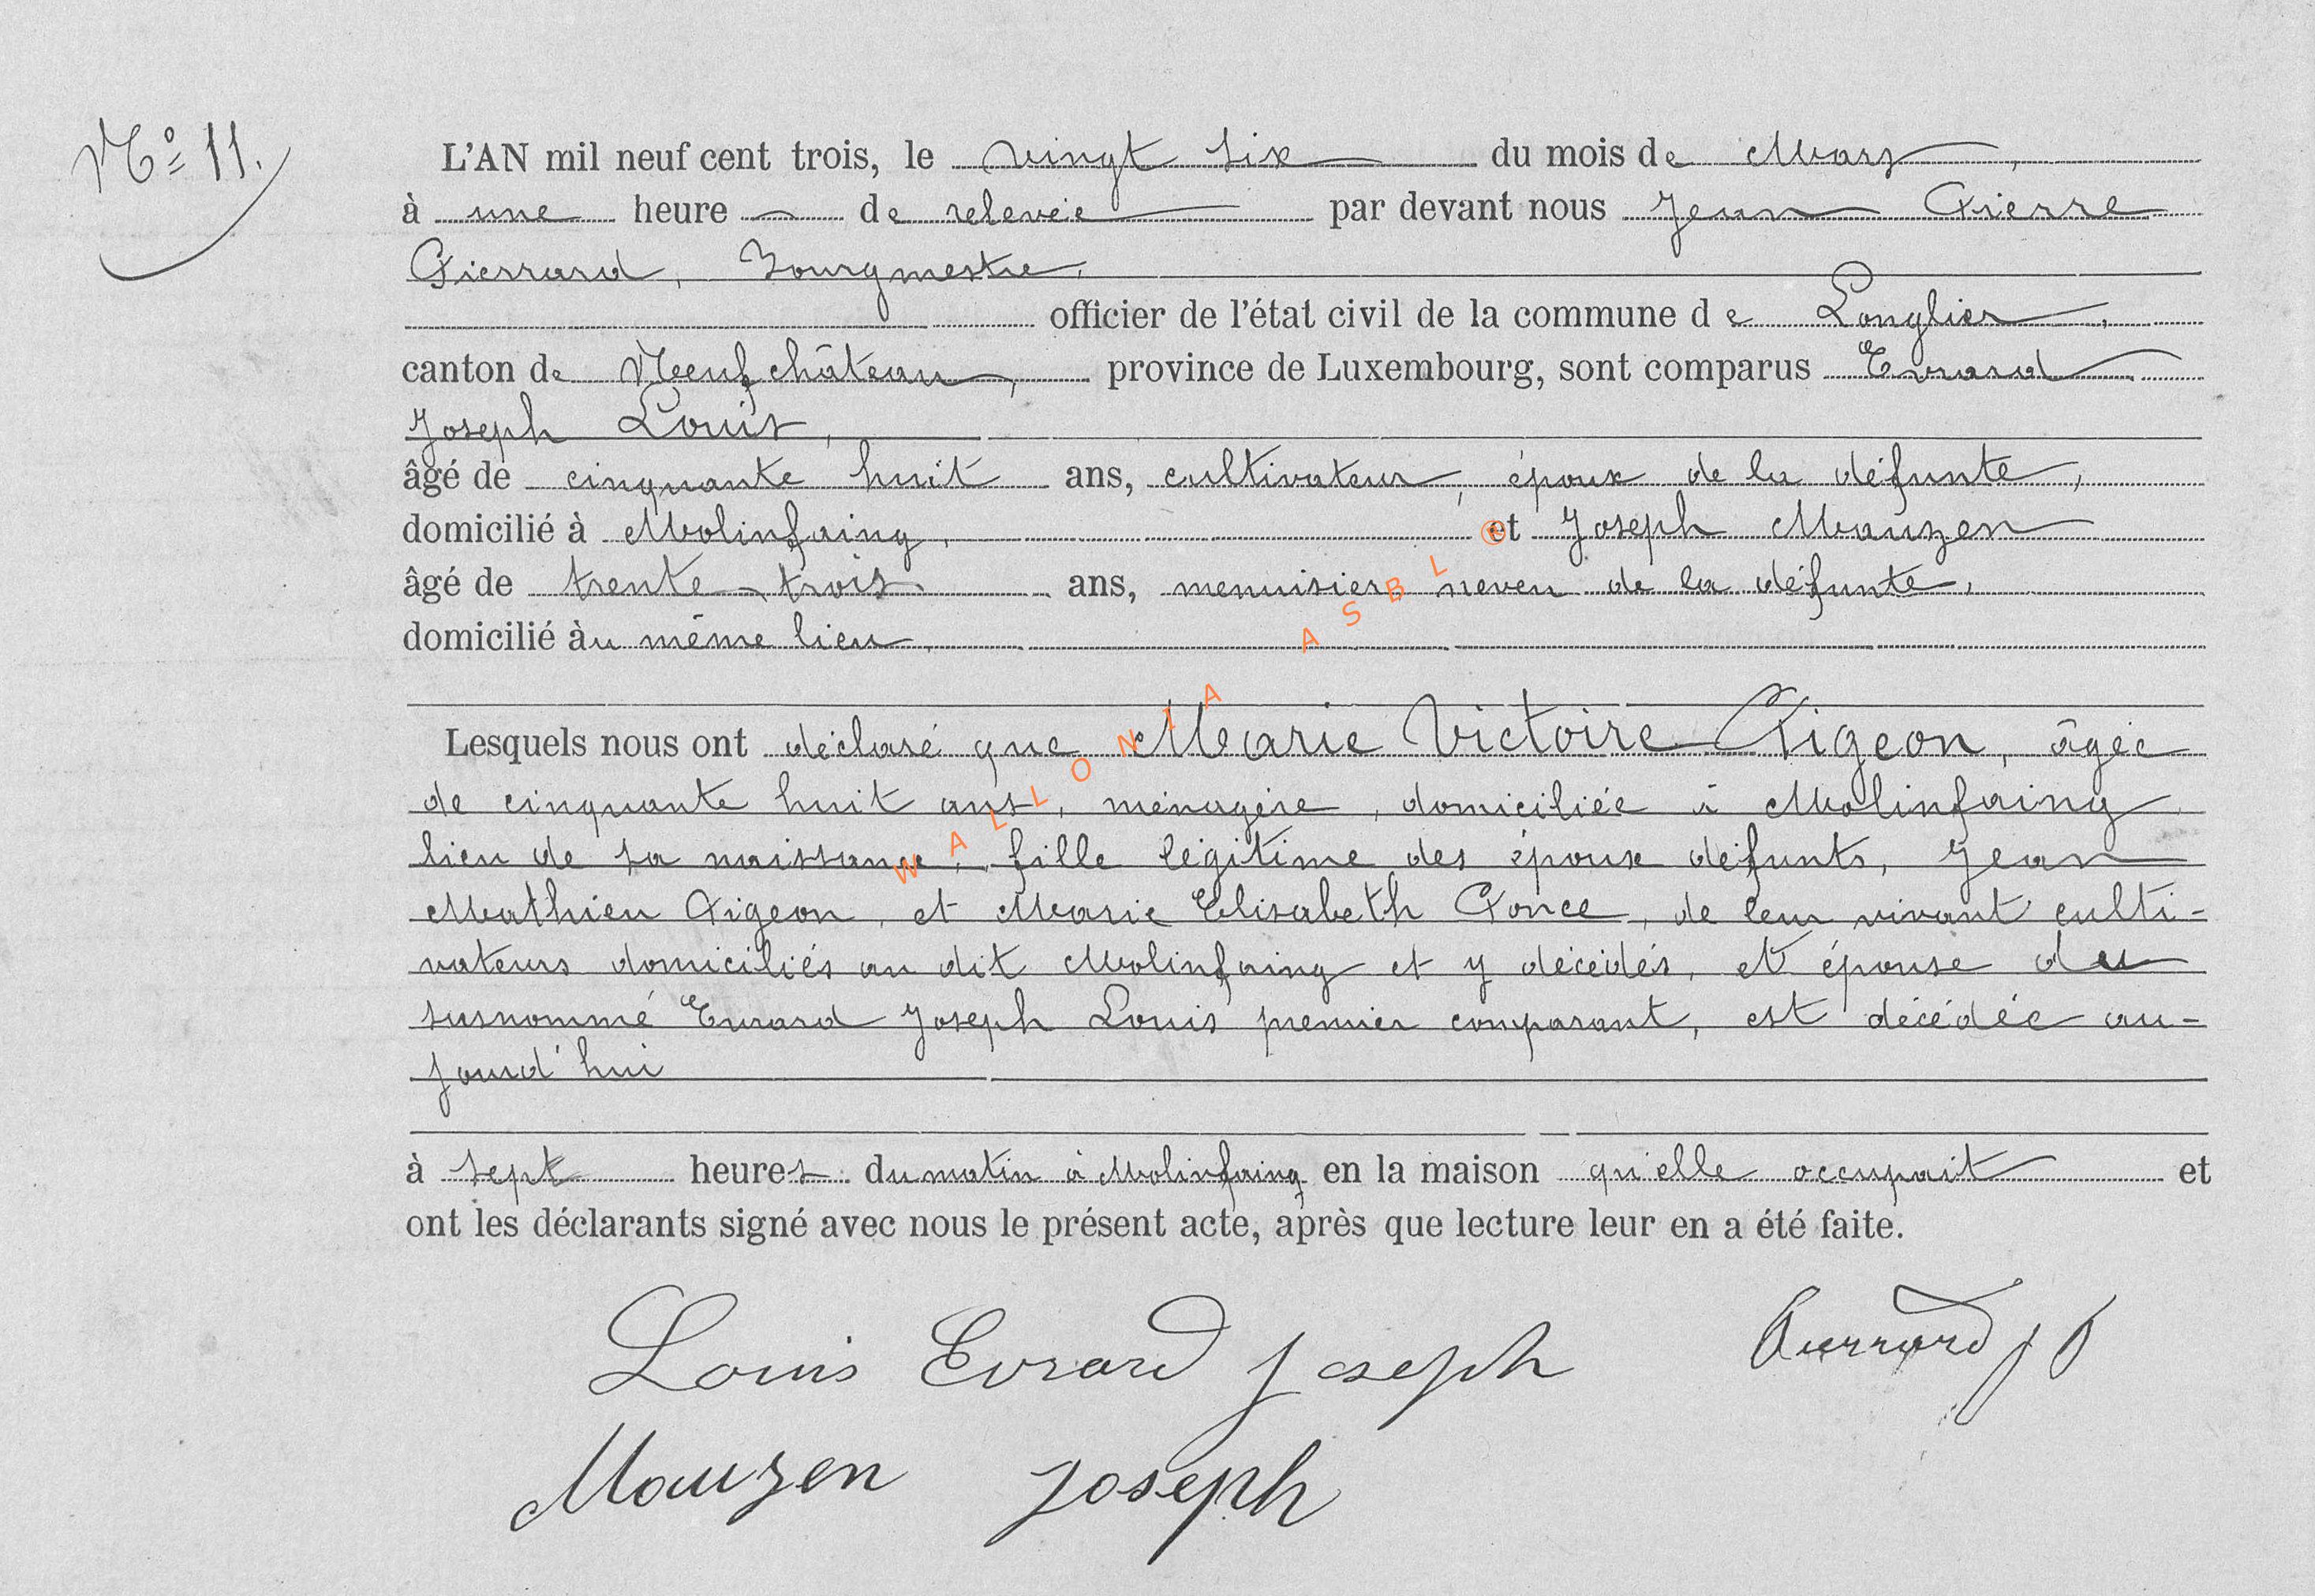 Nº 11.
L'AN mil neuf cent trois, le vingt six du mois de Mars,
à une heure de relevée par devant nous Jean Pierre
Pierrard, Bourgmestre,
officier de l'état civil de la commune de Longlier,
canton de Neufchâteau, province de Luxembourg, sont comparus Evrard
Joseph Louis,
âgé de cinquante huit ans, cultivateur, époux de la défunte,
domicilié à Molinfaing, et Joseph Mauzen
âgé de trente trois ans, menuisier neveu de la défunte,
domicilié àu même lieu.
Lesquels nous ont déclaré que Marie Victoire Pigeon, âgée
de cinquante huit ans, ménagère, domiciliée à Molinfaing
lieu de sa naissance, fille légitime des époux défunts, Jean
Mathieu Pigeon, et Marie Elisabeth Ponce, de leur vivant culti-
vateurs domiciliés au dit Molinfaing et y décédés, et épouse du
susnommé Evrard Joseph Louis premier comparant, est décédée au-
jourd'hui
à sept heures du matin à Molinfaing en la maison qu'elle occupait et
ont les déclarants signé avec nous le présent acte, après que lecture leur en a été faite.
Louis Evrard Joseph Pierrard J P
Mauzen Joseph
WALLONIA ASBL ®